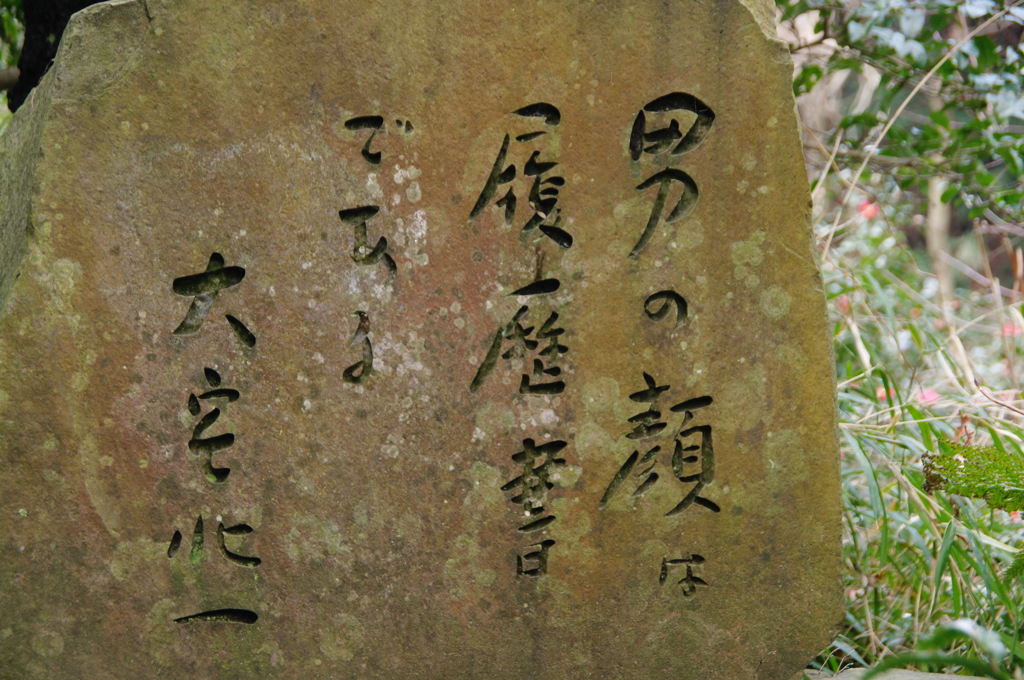 男の顔は
履歴書
である
大宅壮一